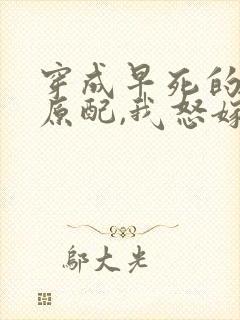 穿成早死的
原配,我怒嫁
邬大光